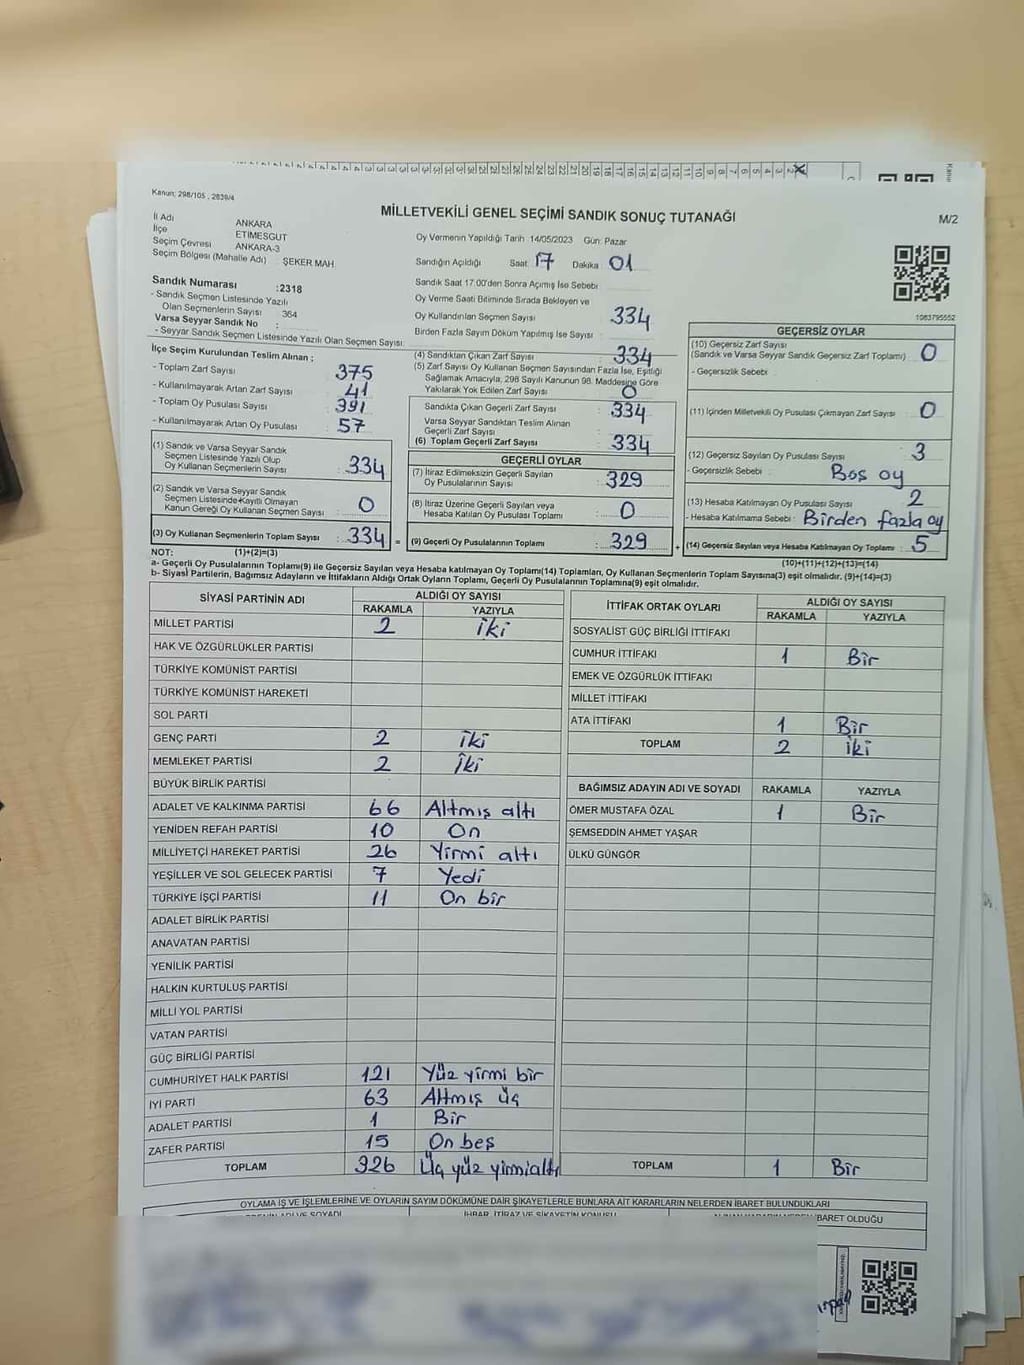 Kanun; 298/105 , 2839/4
MİLLETVEKİLİ GENEL SEÇİMİ SANDIK SONUÇ TUTANAĞI
M/2
İl Adı ANKARA
İlçe ETİMESGUT
Seçim Çevresi ANKARA-3
Seçim Bölgesi (Mahalle Adı) ŞEKER MAH.
Oy Vermenin Yapıldığı Tarih 14/05/2023 Gün: Pazar
Sandığın Açıldığı Saat: 17 Dakika: 01
Sandık Saat 17.00'den Sonra Açılmış İse Sebebi
Oy Verme Saati Bitiminde Sırada Bekleyen ve
Oy Kullandırılan Seçmen Sayısı : 334
Birden Fazla Sayım Döküm Yapılmış İse Sayısı :
1083795552
Sandık Numarası :2318
- Sandık Seçmen Listesinde Yazılı
Olan Seçmenlerin Sayısı : 364
Varsa Seyyar Sandık No :
- Seyyar Sandık Seçmen Listesinde Yazılı Olan Seçmen Sayısı:
İlçe Seçim Kurulundan Teslim Alınan ;
- Toplam Zarf Sayısı : 375
- Kullanılmayarak Artan Zarf Sayısı : 41
- Toplam Oy Pusulası Sayısı : 391
- Kullanılmayarak Artan Oy Pusulası : 57
(1) Sandık ve Varsa Seyyar Sandık
Seçmen Listesinde Yazılı Olup
Oy Kullanan Seçmenlerin Sayısı : 334
(2) Sandık ve Varsa Seyyar Sandık
Seçmen Listesinde Kayıtlı Olmayan
Kanun Gereği Oy Kullanan Seçmen Sayısı : 0
(3) Oy Kullanan Seçmenlerin Toplam Sayısı : 334 =
(4) Sandıktan Çıkan Zarf Sayısı : 334
(5) Zarf Sayısı Oy Kullanan Seçmen Sayısından Fazla İse, Eşitliği
Sağlamak Amacıyla, 298 Sayılı Kanunun 98. Maddesine Göre
Yakılarak Yok Edilen Zarf Sayısı : 0
Sandıkta Çıkan Geçerli Zarf Sayısı : 334
Varsa Seyyar Sandıktan Teslim Alınan
Geçerli Zarf Sayısı :
(6) Toplam Geçerli Zarf Sayısı : 334
GEÇERLİ OYLAR
(7) İtiraz Edilmeksizin Geçerli Sayılan
Oy Pusulalarının Sayısı : 329
(8) İtiraz Üzerine Geçerli Sayılan veya
Hesaba Katılan Oy Pusulası Toplamı : 0
(9) Geçerli Oy Pusulalarının Toplamı : 329 +
GEÇERSİZ OYLAR
(10) Geçersiz Zarf Sayısı
(Sandık ve Varsa Seyyar Sandık Geçersiz Zarf Toplamı) : 0
- Geçersizlik Sebebi :
(11) İçinden Milletvekili Oy Pusulası Çıkmayan Zarf Sayısı : 0
(12) Geçersiz Sayılan Oy Pusulası Sayısı : 3
- Geçersizlik Sebebi : Boş oy
(13) Hesaba Katılmayan Oy Pusulası Sayısı : 2
- Hesaba Katılmama Sebebi : Birden fazla oy
(14) Geçersiz Sayılan veya Hesaba Katılmayan Oy Toplamı : 5
NOT: (1)+(2)=(3) (10)+(11)+(12)+(13)=(14)
a- Geçerli Oy Pusulalarının Toplamı(9) ile Geçersiz Sayılan veya Hesaba katılmayan Oy Toplamı(14) Toplamları, Oy Kullanan Seçmenlerin Toplam Sayısına(3) eşit olmalıdır. (9)+(14)=(3)
b- Siyasi Partilerin, Bağımsız Adayların ve İttifakların Aldığı Ortak Oyların Toplamı, Geçerli Oy Pusulalarının Toplamına(9) eşit olmalıdır.
SİYASİ PARTİNİN ADI ALDIĞI OY SAYISI
RAKAMLA YAZIYLA
MİLLET PARTİSİ 2 iki
HAK VE ÖZGÜRLÜKLER PARTİSİ
TÜRKİYE KOMÜNİST PARTİSİ
TÜRKİYE KOMÜNİST HAREKETİ
SOL PARTİ
GENÇ PARTİ 2 iki
MEMLEKET PARTİSİ 2 iki
BÜYÜK BİRLİK PARTİSİ
ADALET VE KALKINMA PARTİSİ 66 Altmış altı
YENİDEN REFAH PARTİSİ 10 On
MİLLİYETÇİ HAREKET PARTİSİ 26 Yirmi altı
YEŞİLLER VE SOL GELECEK PARTİSİ 7 Yedi
TÜRKİYE İŞÇİ PARTİSİ 11 On bir
ADALET BİRLİK PARTİSİ
ANAVATAN PARTİSİ
YENİLİK PARTİSİ
HALKIN KURTULUŞ PARTİSİ
MİLLİ YOL PARTİSİ
VATAN PARTİSİ
GÜÇ BİRLİĞİ PARTİSİ
CUMHURİYET HALK PARTİSİ 121 Yüz yirmi bir
İYİ PARTİ 63 Altmış üç
ADALET PARTİSİ 1 Bir
ZAFER PARTİSİ 15 On beş
TOPLAM 326 Üç yüz yirmialtı
İTTİFAK ORTAK OYLARI ALDIĞI OY SAYISI
RAKAMLA YAZIYLA
SOSYALİST GÜÇ BİRLİĞİ İTTİFAKI
CUMHUR İTTİFAKI 1 Bir
EMEK VE ÖZGÜRLÜK İTTİFAKI
MİLLET İTTİFAKI
ATA İTTİFAKI 1 Bir
TOPLAM 2 iki
BAĞIMSIZ ADAYIN ADI VE SOYADI RAKAMLA YAZIYLA
ÖMER MUSTAFA ÖZAL 1 Bir
ŞEMSEDDİN AHMET YAŞAR
ÜLKÜ GÜNGÖR
TOPLAM 1 Bir
OYLAMA İŞ VE İŞLEMLERİNE VE OYLARIN SAYIM DÖKÜMÜNE DAİR ŞİKAYETLERLE BUNLARA AİT KARARLARIN NELERDEN İBARET BULUNDUKLARI
İHBAR, İTİRAZ VE ŞİKAYETİN KONUSU
İBARET OLDUĞU